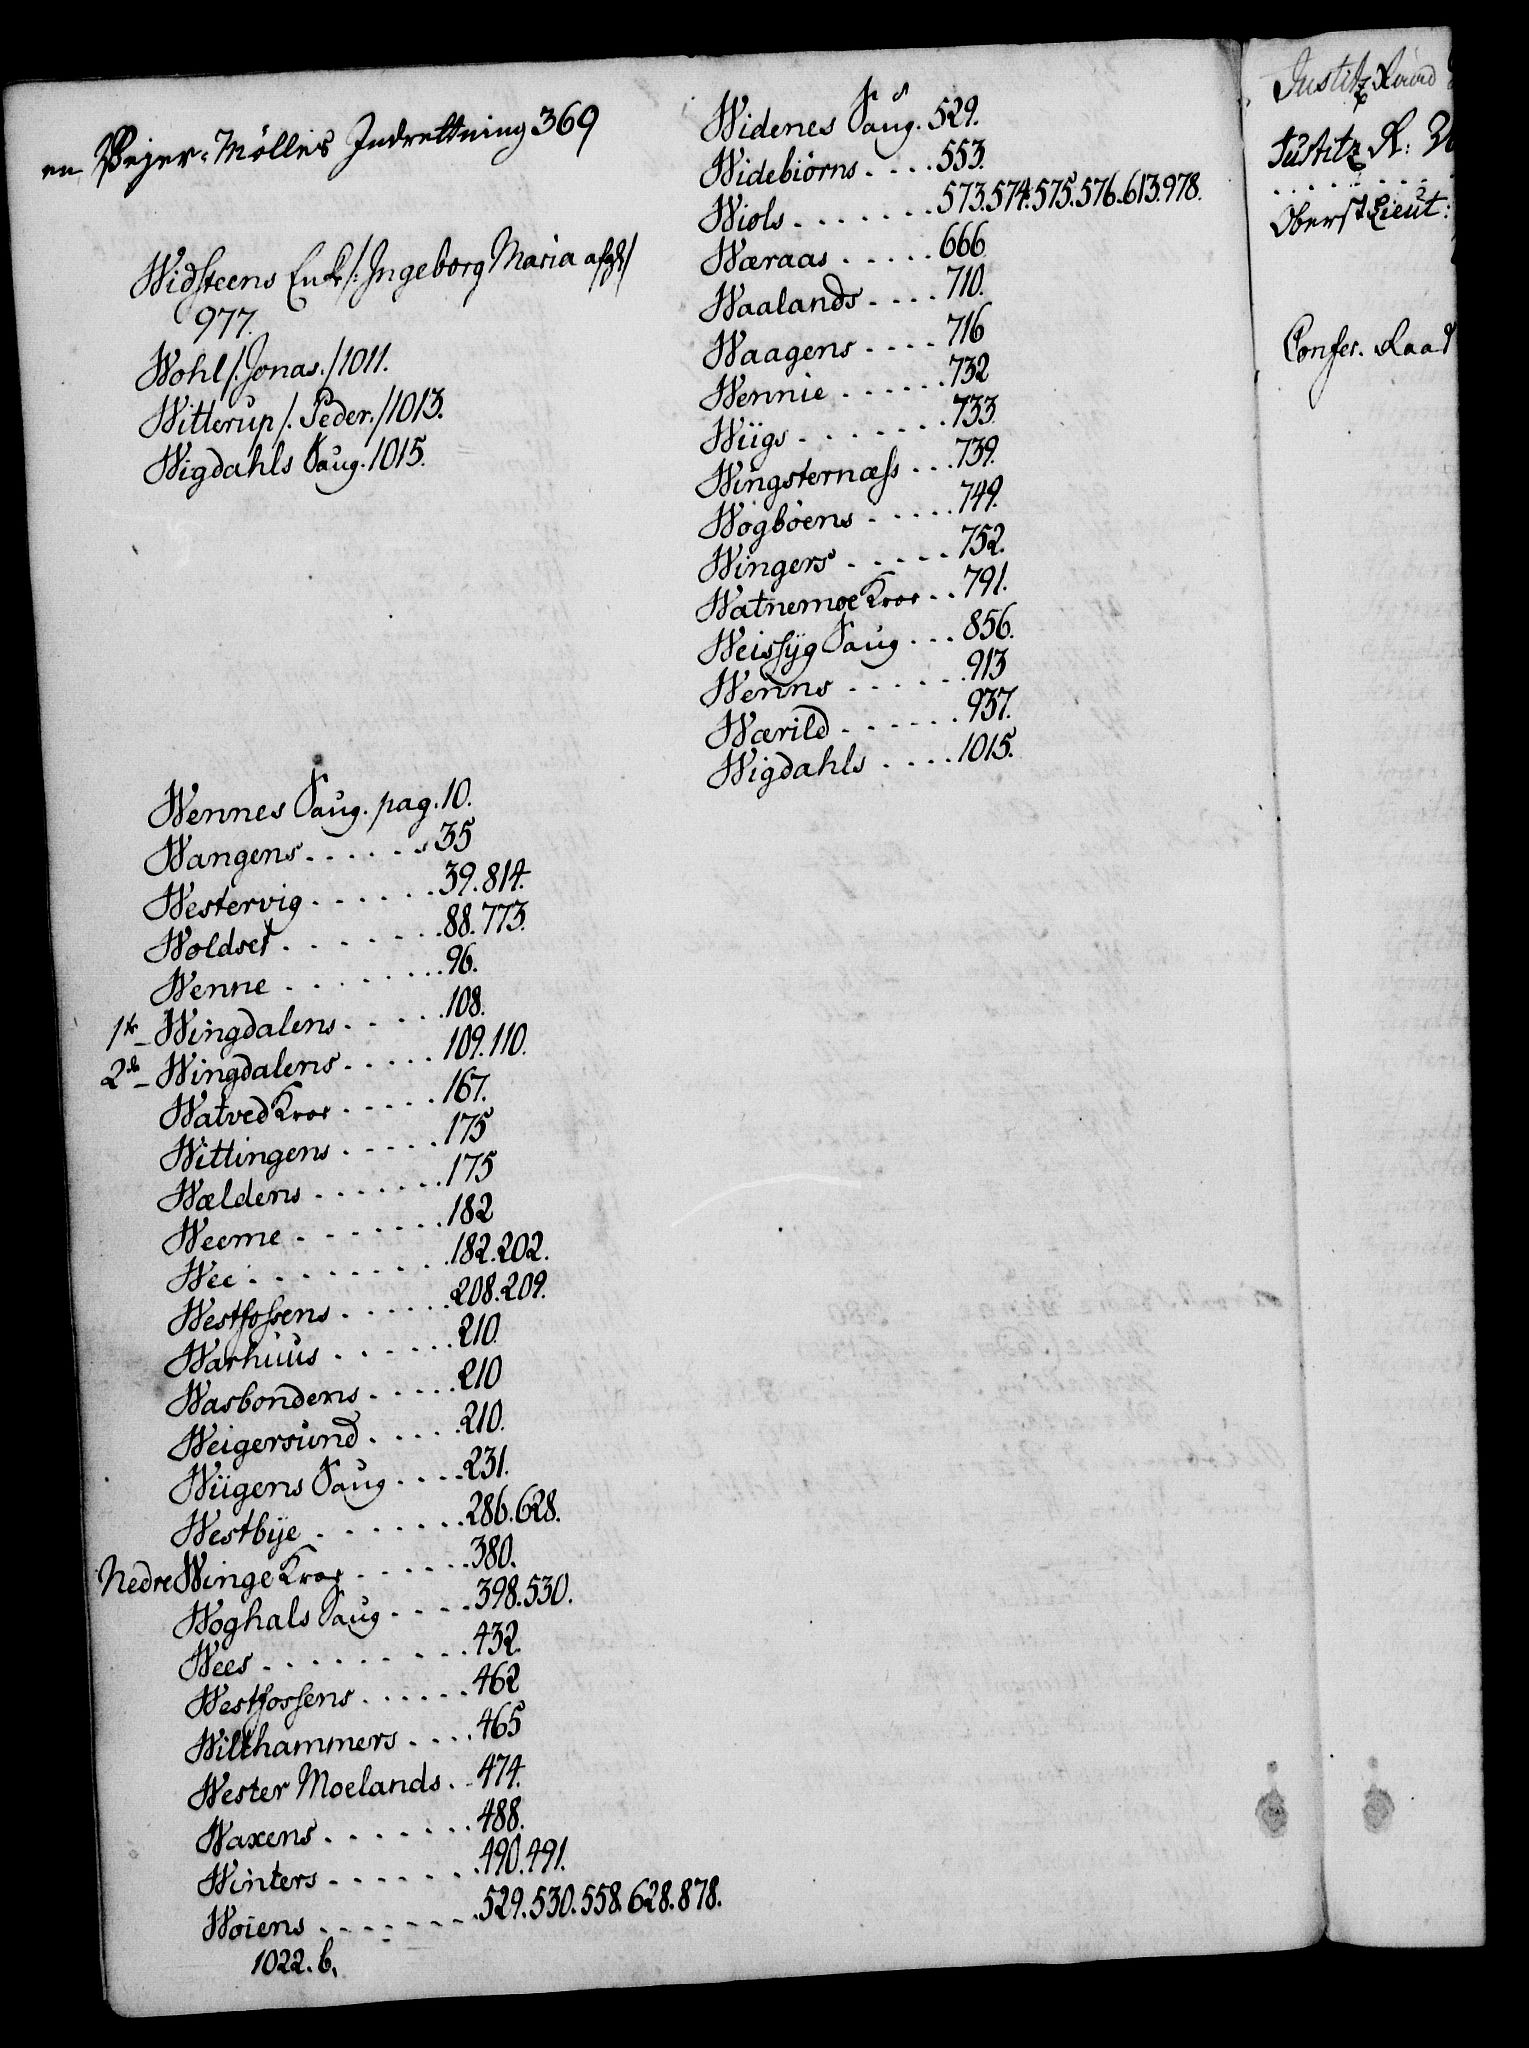 en Vejer-Mølles Indrettning 369
Widsteens Enke /: Ingeborg Maria afgl /
977.
Wohl /. Jonas. / 1011.
Witterup /. Peder. / 1013.
Wigdahls Saug. 1015.
Wennes Saug. pag. 10.
Wangens . . . . . . 35
Westervig . . . . . . 39. 814.
Woldset . . . . . . . 88. 773.
Wenne . . . . . . . . 96.
1te - Wingdalens . . . . . 108.
2de - Wingdalens . . . . . 109. 110.
Watved Kroe . . . . . 167.
Wittingens . . . . . 175
Wældens . . . . . . . 175
Weeme . . . . . . . . 182
Wee . . . . . . . . . 182. 202.
Westfossens . . . . . . 208. 209.
Warhuus . . . . . . 210.
Wasbondens . . . . . 210
Weigersund . . . . . 210.
Wiigens Saug . . . . 231.
Westbye . . . . . . . . 286. 628.
Nedre Winge Kroe . . . . . . 380.
Woghals Saug . . . . 398. 530.
Wees . . . . . . . . . 432.
Westfossens . . . . . . 462
Wilthammers . . . . 465
Wester Moelands . . 474.
Waxens . . . . . . . 488.
Winters . . . . . . . 490. 491.
Woiens . . . . . . . . 529. 530. 558. 628. 878.
1022. b.
Widenes Saug. 529.
Widebiørns . . . . 553.
Wiols . . . . . . . 573. 574. 575. 576. 613. 978.
Wæraas . . . . . 666
Waalands . . . . 710.
Waagens . . . . 716
Wennie . . . . . . 732
Wiigs . . . . . . . . 733.
Wingsternæss . . . 739.
Wøgbøens . . . . . 749.
Wingers . . . . . 752.
Watnemoe Kroe . . 791.
Weissyg Saug . . . 856.
Wenns . . . . . . 913
Wærild . . . . . . 937.
Wigdahls . . . . 1015.
Justitz Raad
Justitz R:
. . . . . . . .
Oberst Lieut:
Confer. Raad